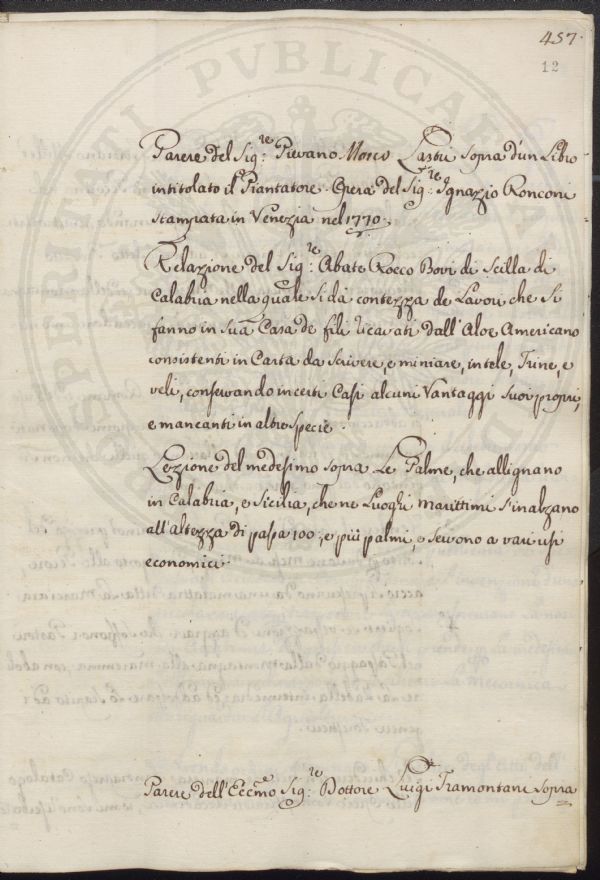 457.
12
Parere del Sig.re Pievano Marco Lastri sopra d'un Libro
intitolato il Piantatore. Opera del Sig.re Ignazio Ronconi
stampata in Venezia nel 1770.
Relazione del Sig.re Abate Rocco Bovi di Scilla di
Calabria nella quale si dà contezza de Lavori che si
fanno in sua Casa de fili ricavati dall'Aloe Americano
consistenti in Carta da scrivere, e miniare, in tele, Trine, e
veli, conservando in certi Casi alcuni Vantaggi suoi propri,
e mancanti in altre specie.
Lezione del medesimo sopra Le Palme, che allignano
in Calabria, e Sicilia, che ne Luoghi marittimi s'inalzano
all'altezza di passa 100, e più palmi, e servono a vari usi
economici.
Parere dell'Eccmo Sig.re Dottore Luigi Tramontani sopra
PROSPERITATI PUBLICAE